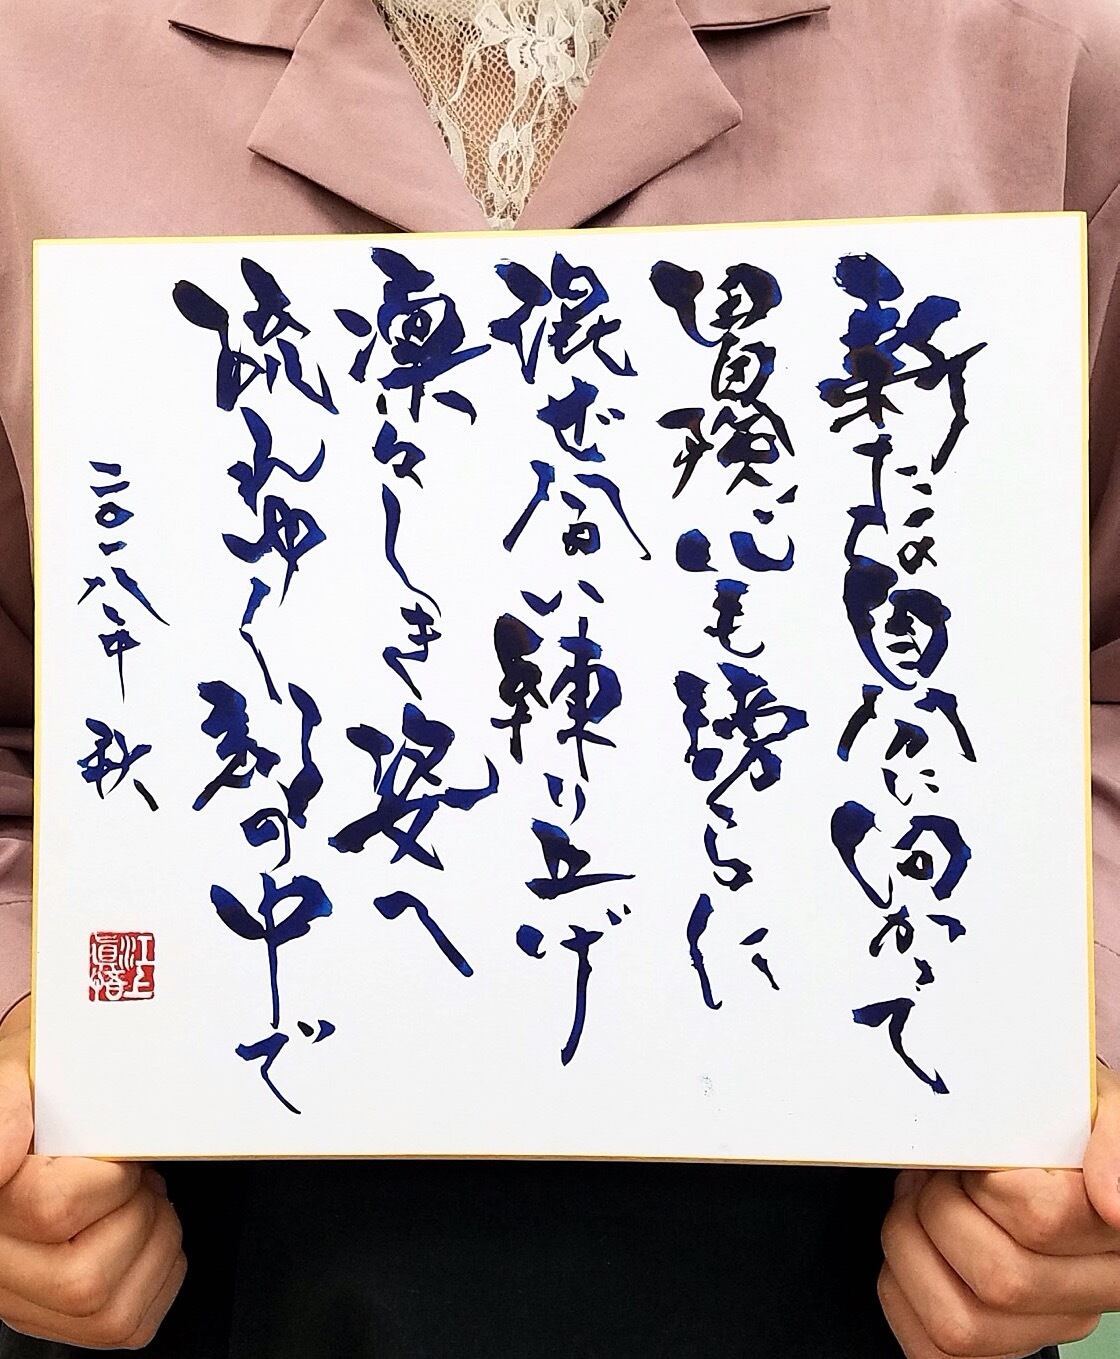 新たな自分に向かって
冒険心も誇らに
混ぜ合い練り上げ
凜々しき姿へ
流れゆく刻の中で
二〇一八年 秋
江上
眞悟